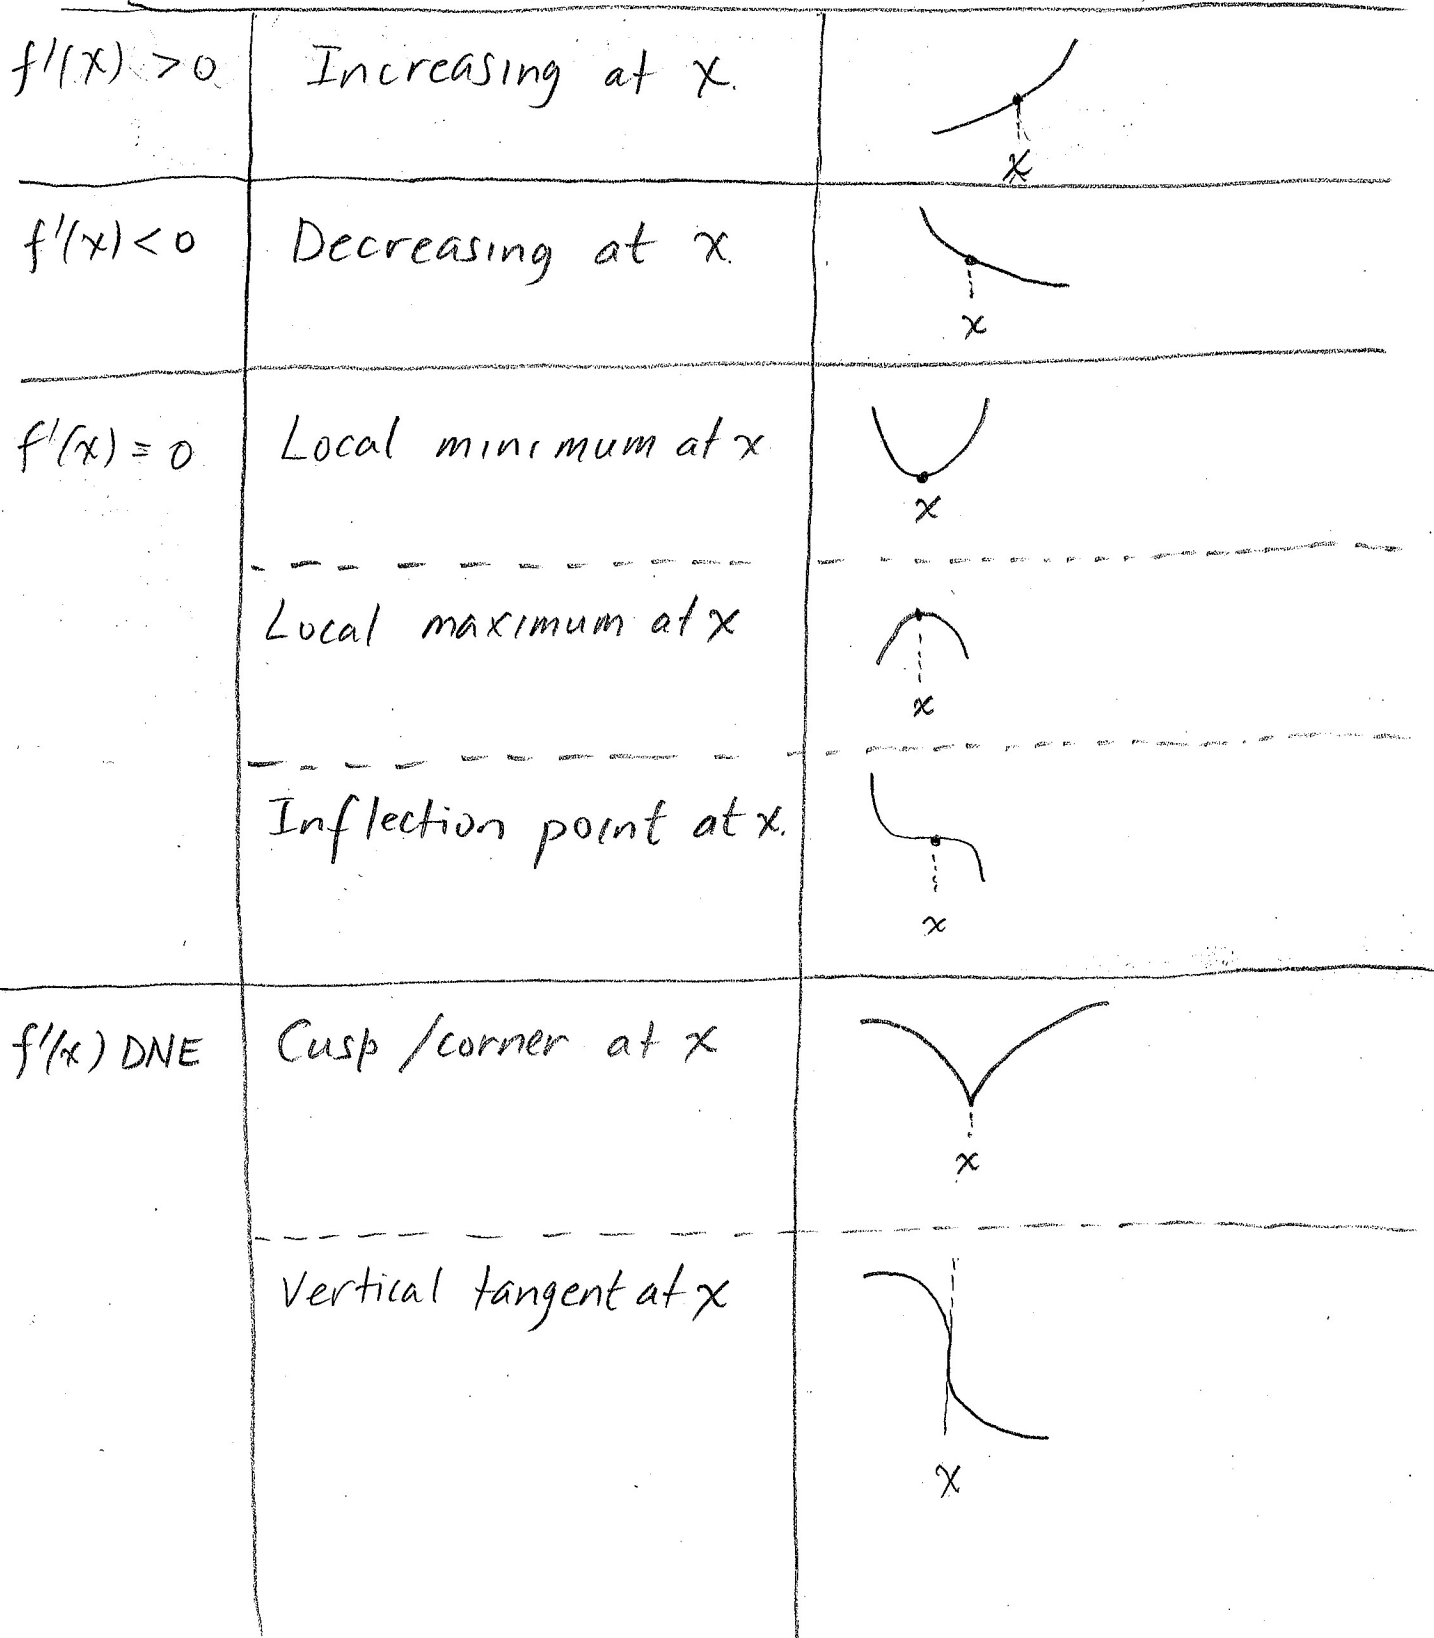 f'(x) > 0 Increasing at x.
x
f'(x) < 0 Decreasing at x.
x
f'(x) = 0 Local minimum at x
x
Local maximum at x
x
Inflection point at x.
x
f'(x) DNE Cusp / corner at x
x
Vertical tangent at x
x